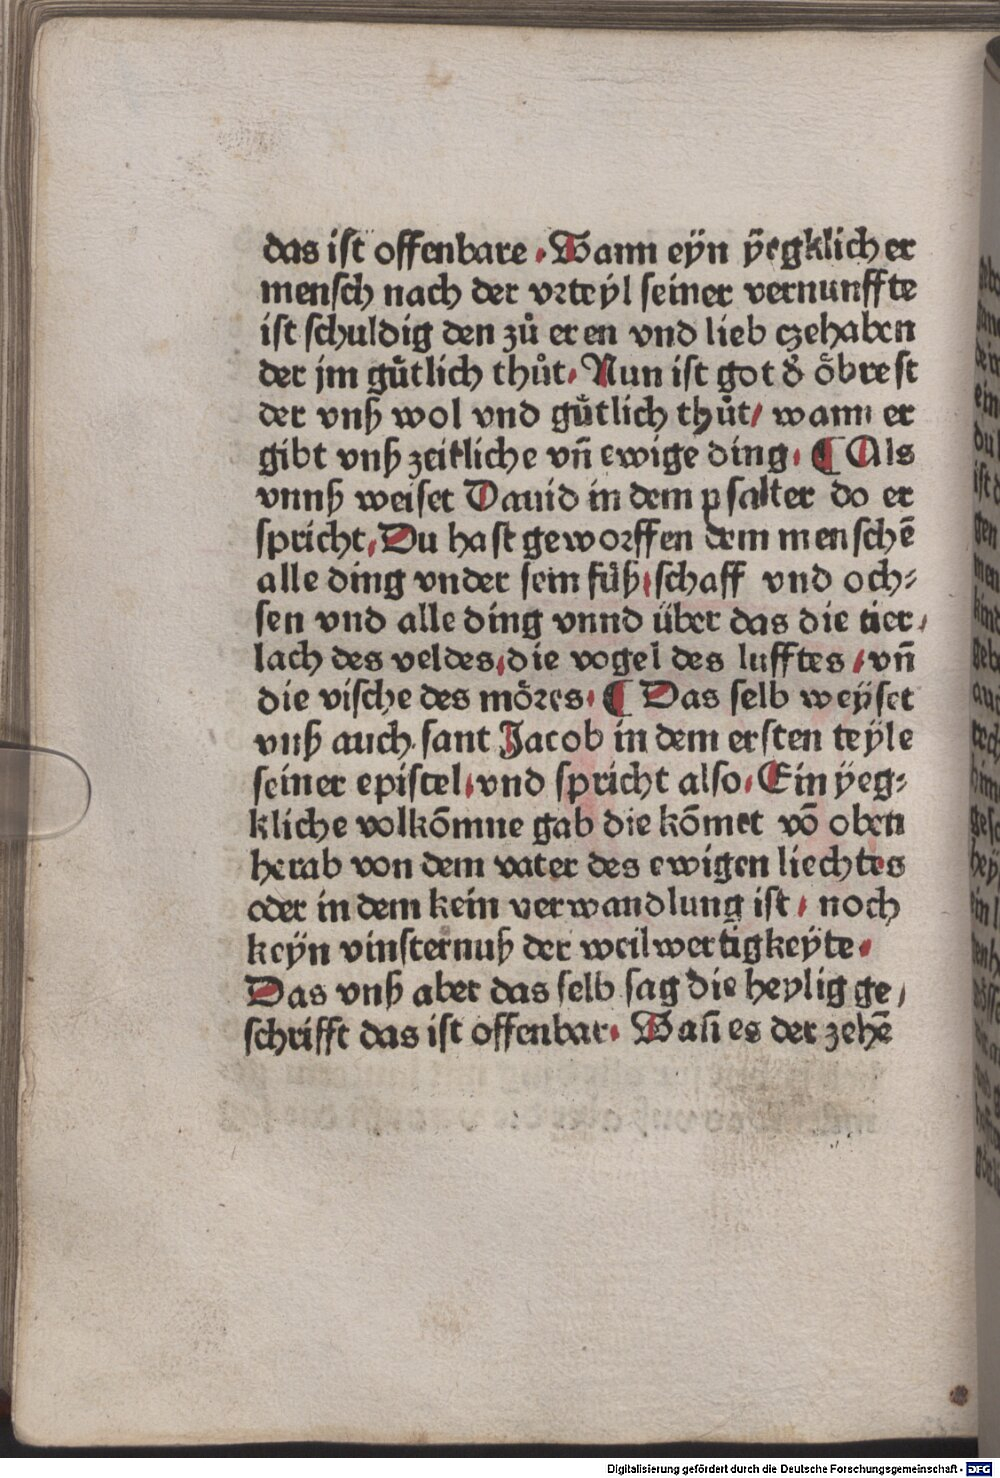 das iſt offenbare · Wann eÿn ÿegklicher
menſch nach der vꝛteÿl ſeiner vernunffte
iſt ſchuldig den zů eren vnd lieb czehaben
der jm gůtlich thůt · Nun iſt got ď öbreſt
der vnß wol vnd gůtlich thůt / wann er
gibt vnß zeitliche vñ ewige ding · ¶ Als
vnnß weiſet Dauid in dem pſalter do er
ſpricht / Du haſt gewoꝛffen dem menſchē
alle ding vnder ſein fůß / ſchaff vnd och⸗
ſen vnd alle ding vnnd über das die tier /
lach des veldes / die vogel des lufftes / vñ
die viſche des möꝛes · ¶ Das ſelb weÿſet
vnß auch ſant Jacob in dem erſten teÿle
ſeiner epiſtel / vnd ſpricht alſo / Ein ÿeg⸗
kliche volkōmne gab die kōmet vō oben
herab von dem vater des ewigen liechtes
oder in dem kein verwandlung iſt / noch
keÿn vinſternuß der weilwertigkeÿte ·
Das vnß aber das ſelb ſag die heylig ge /
ſchrifft das iſt offenbar · Wañ es der zehē
Digitalisierung gefördert durch die Deutsche Forschungsgemeinschaft - DFG